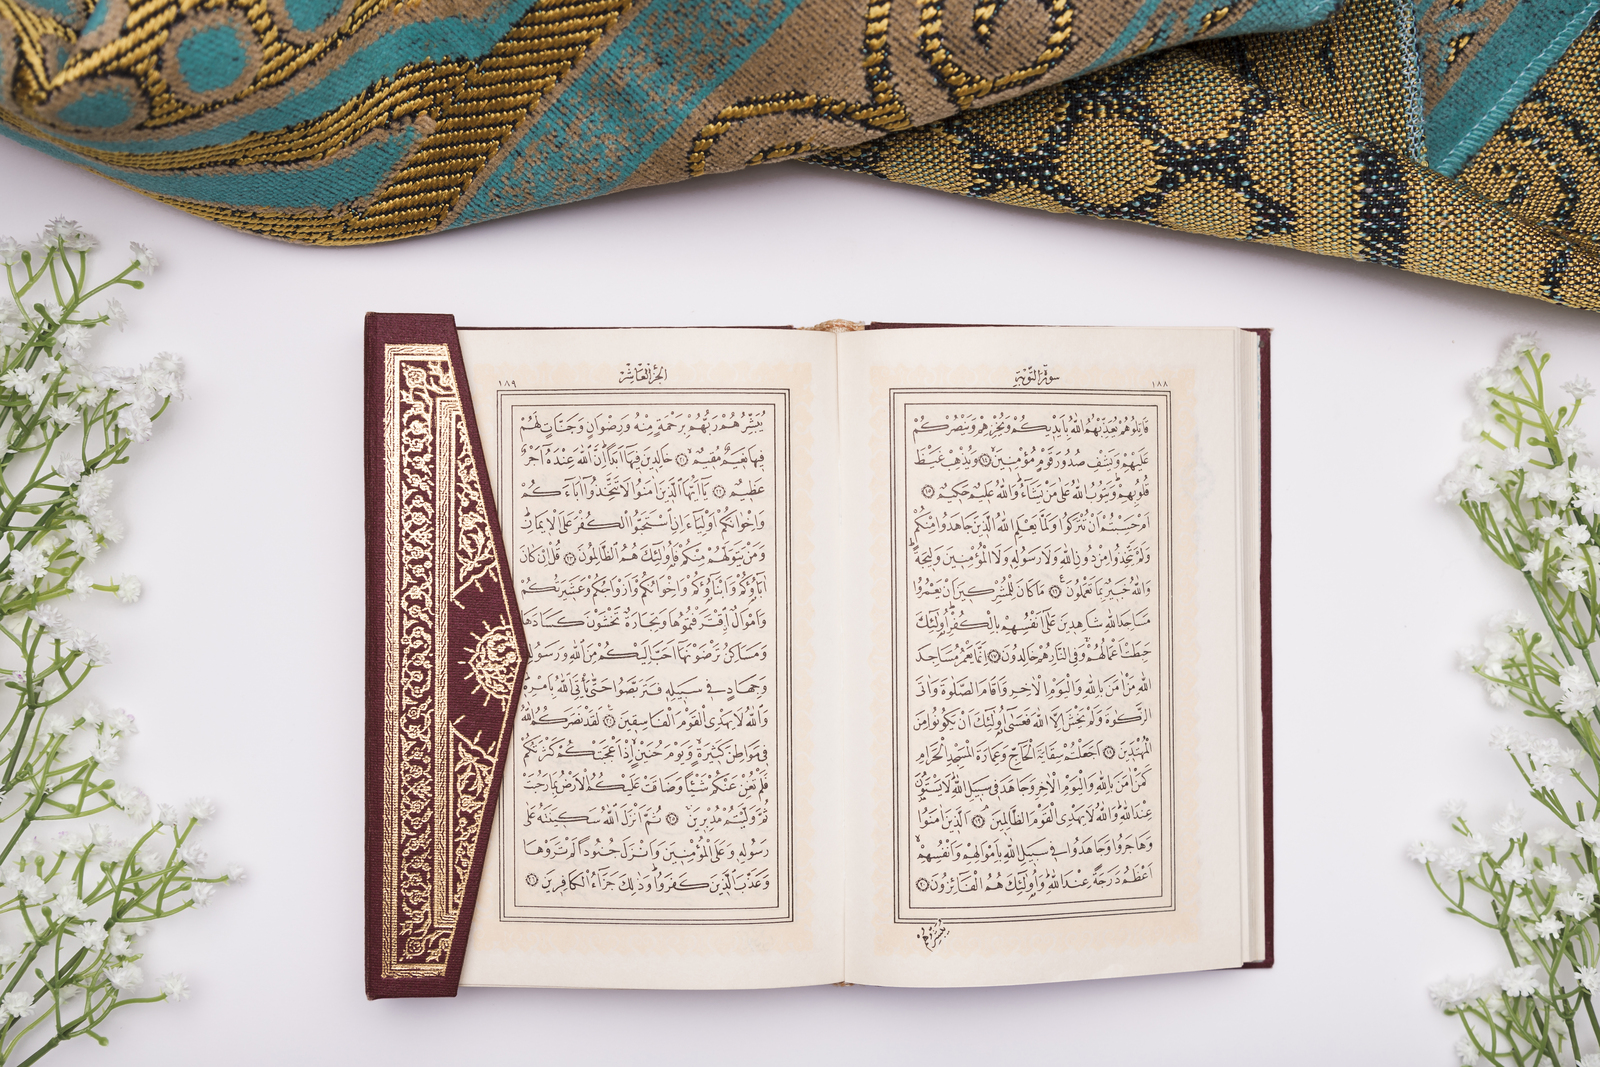 سورة التوبة
١٨٨
قَاتِلُوهُمْ يُعَذِّبْهُمُ اللّٰهُ بِاَيْدِيكُمْ وَيُخْزِهِمْ وَيَنْصُرْكُمْ
عَلَيْهِمْ وَيَشْفِ صُدُورَ قَوْمٍ مُؤْمِنِينَ ﴿١٤﴾ وَيُذْهِبْ غَيْظَ
قُلُوبِهِمْ وَيَتُوبُ اللّٰهُ عَلٰى مَنْ يَشَاءُ وَاللّٰهُ عَلِيمٌ حَكِيمٌ ﴿١٥﴾
اَمْ حَسِبْتُمْ اَنْ تُتْرَكُوا وَلَمَّا يَعْلَمِ اللّٰهُ الَّذِينَ جَاهَدُوا مِنْكُمْ
وَلَمْ يَتَّخِذُوا مِنْ دُونِ اللّٰهِ وَلَا رَسُولِهِ وَلَا الْمُؤْمِنِينَ وَلِيجَةً
وَاللّٰهُ خَبِيرٌ بِمَا تَعْمَلُونَ ﴿١٦﴾ مَا كَانَ لِلْمُشْرِكِينَ اَنْ يَعْمُرُوا
مَسَاجِدَ اللّٰهِ شَاهِدِينَ عَلٰى اَنْفُسِهِمْ بِالْكُفْرِ اُولٰئِكَ
حَبِطَتْ اَعْمَالُهُمْ وَفِي النَّارِ هُمْ خَالِدُونَ ﴿١٧﴾ اِنَّمَا يَعْمُرُ مَسَاجِدَ
اللّٰهِ مَنْ اٰمَنَ بِاللّٰهِ وَالْيَوْمِ الْاٰخِرِ وَاَقَامَ الصَّلٰوةَ وَاٰتَى
الزَّكٰوةَ وَلَمْ يَخْشَ اِلَّا اللّٰهَ فَعَسٰى اُولٰئِكَ اَنْ يَكُونُوا مِنَ
الْمُهْتَدِينَ ﴿١٨﴾ اَجَعَلْتُمْ سِقَايَةَ الْحَاجِّ وَعِمَارَةَ الْمَسْجِدِ الْحَرَامِ
كَمَنْ اٰمَنَ بِاللّٰهِ وَالْيَوْمِ الْاٰخِرِ وَجَاهَدَ فِي سَبِيلِ اللّٰهِ لَا يَسْتَوُونَ
عِنْدَ اللّٰهِ وَاللّٰهُ لَا يَهْدِي الْقَوْمَ الظَّالِمِينَ ﴿١٩﴾ اَلَّذِينَ اٰمَنُوا
وَهَاجَرُوا وَجَاهَدُوا فِي سَبِيلِ اللّٰهِ بِاَمْوَالِهِمْ وَاَنْفُسِهِمْ
اَعْظَمُ دَرَجَةً عِنْدَ اللّٰهِ وَاُولٰئِكَ هُمُ الْفَائِزُونَ ﴿٢٠﴾
يُبَشِّرُهُمْ
الجزء العاشر
١٨٩
يُبَشِّرُهُمْ رَبُّهُمْ بِرَحْمَةٍ مِنْهُ وَرِضْوَانٍ وَجَنَّاتٍ لَهُمْ
فِيهَا نَعِيمٌ مُقِيمٌ ﴿٢١﴾ خَالِدِينَ فِيهَا اَبَدًا اِنَّ اللّٰهَ عِنْدَهُ اَجْرٌ
عَظِيمٌ ﴿٢٢﴾ يَا اَيُّهَا الَّذِينَ اٰمَنُوا لَا تَتَّخِذُوا اٰبَاءَكُمْ
وَاِخْوَانَكُمْ اَوْلِيَاءَ اِنِ اسْتَحَبُّوا الْكُفْرَ عَلَى الْاِيمَانِ
وَمَنْ يَتَوَلَّهُمْ مِنْكُمْ فَاُولٰئِكَ هُمُ الظَّالِمُونَ ﴿٢٣﴾ قُلْ اِنْ كَانَ
اٰبَاؤُكُمْ وَاَبْنَاؤُكُمْ وَاِخْوَانُكُمْ وَاَزْوَاجُكُمْ وَعَشِيرَتُكُمْ
وَاَمْوَالٌ اقْتَرَفْتُمُوهَا وَتِجَارَةٌ تَخْشَوْنَ كَسَادَهَا
وَمَسَاكِنُ تَرْضَوْنَهَا اَحَبَّ اِلَيْكُمْ مِنَ اللّٰهِ وَرَسُولِهِ
وَجِهَادٍ فِي سَبِيلِهِ فَتَرَبَّصُوا حَتّٰى يَأْتِيَ اللّٰهُ بِاَمْرِهِ
وَاللّٰهُ لَا يَهْدِي الْقَوْمَ الْفَاسِقِينَ ﴿٢٤﴾ لَقَدْ نَصَرَكُمُ اللّٰهُ
فِي مَوَاطِنَ كَثِيرَةٍ وَيَوْمَ حُنَيْنٍ اِذْ اَعْجَبَتْكُمْ كَثْرَتُكُمْ
فَلَمْ تُغْنِ عَنْكُمْ شَيْئًا وَضَاقَتْ عَلَيْكُمُ الْاَرْضُ بِمَا رَحُبَتْ
ثُمَّ وَلَّيْتُمْ مُدْبِرِينَ ﴿٢٥﴾ ثُمَّ اَنْزَلَ اللّٰهُ سَكِينَتَهُ عَلٰى
رَسُولِهِ وَعَلَى الْمُؤْمِنِينَ وَاَنْزَلَ جُنُودًا لَمْ تَرَوْهَا
وَعَذَّبَ الَّذِينَ كَفَرُوا وَذٰلِكَ جَزَاءُ الْكَافِرِينَ ﴿٢٦﴾